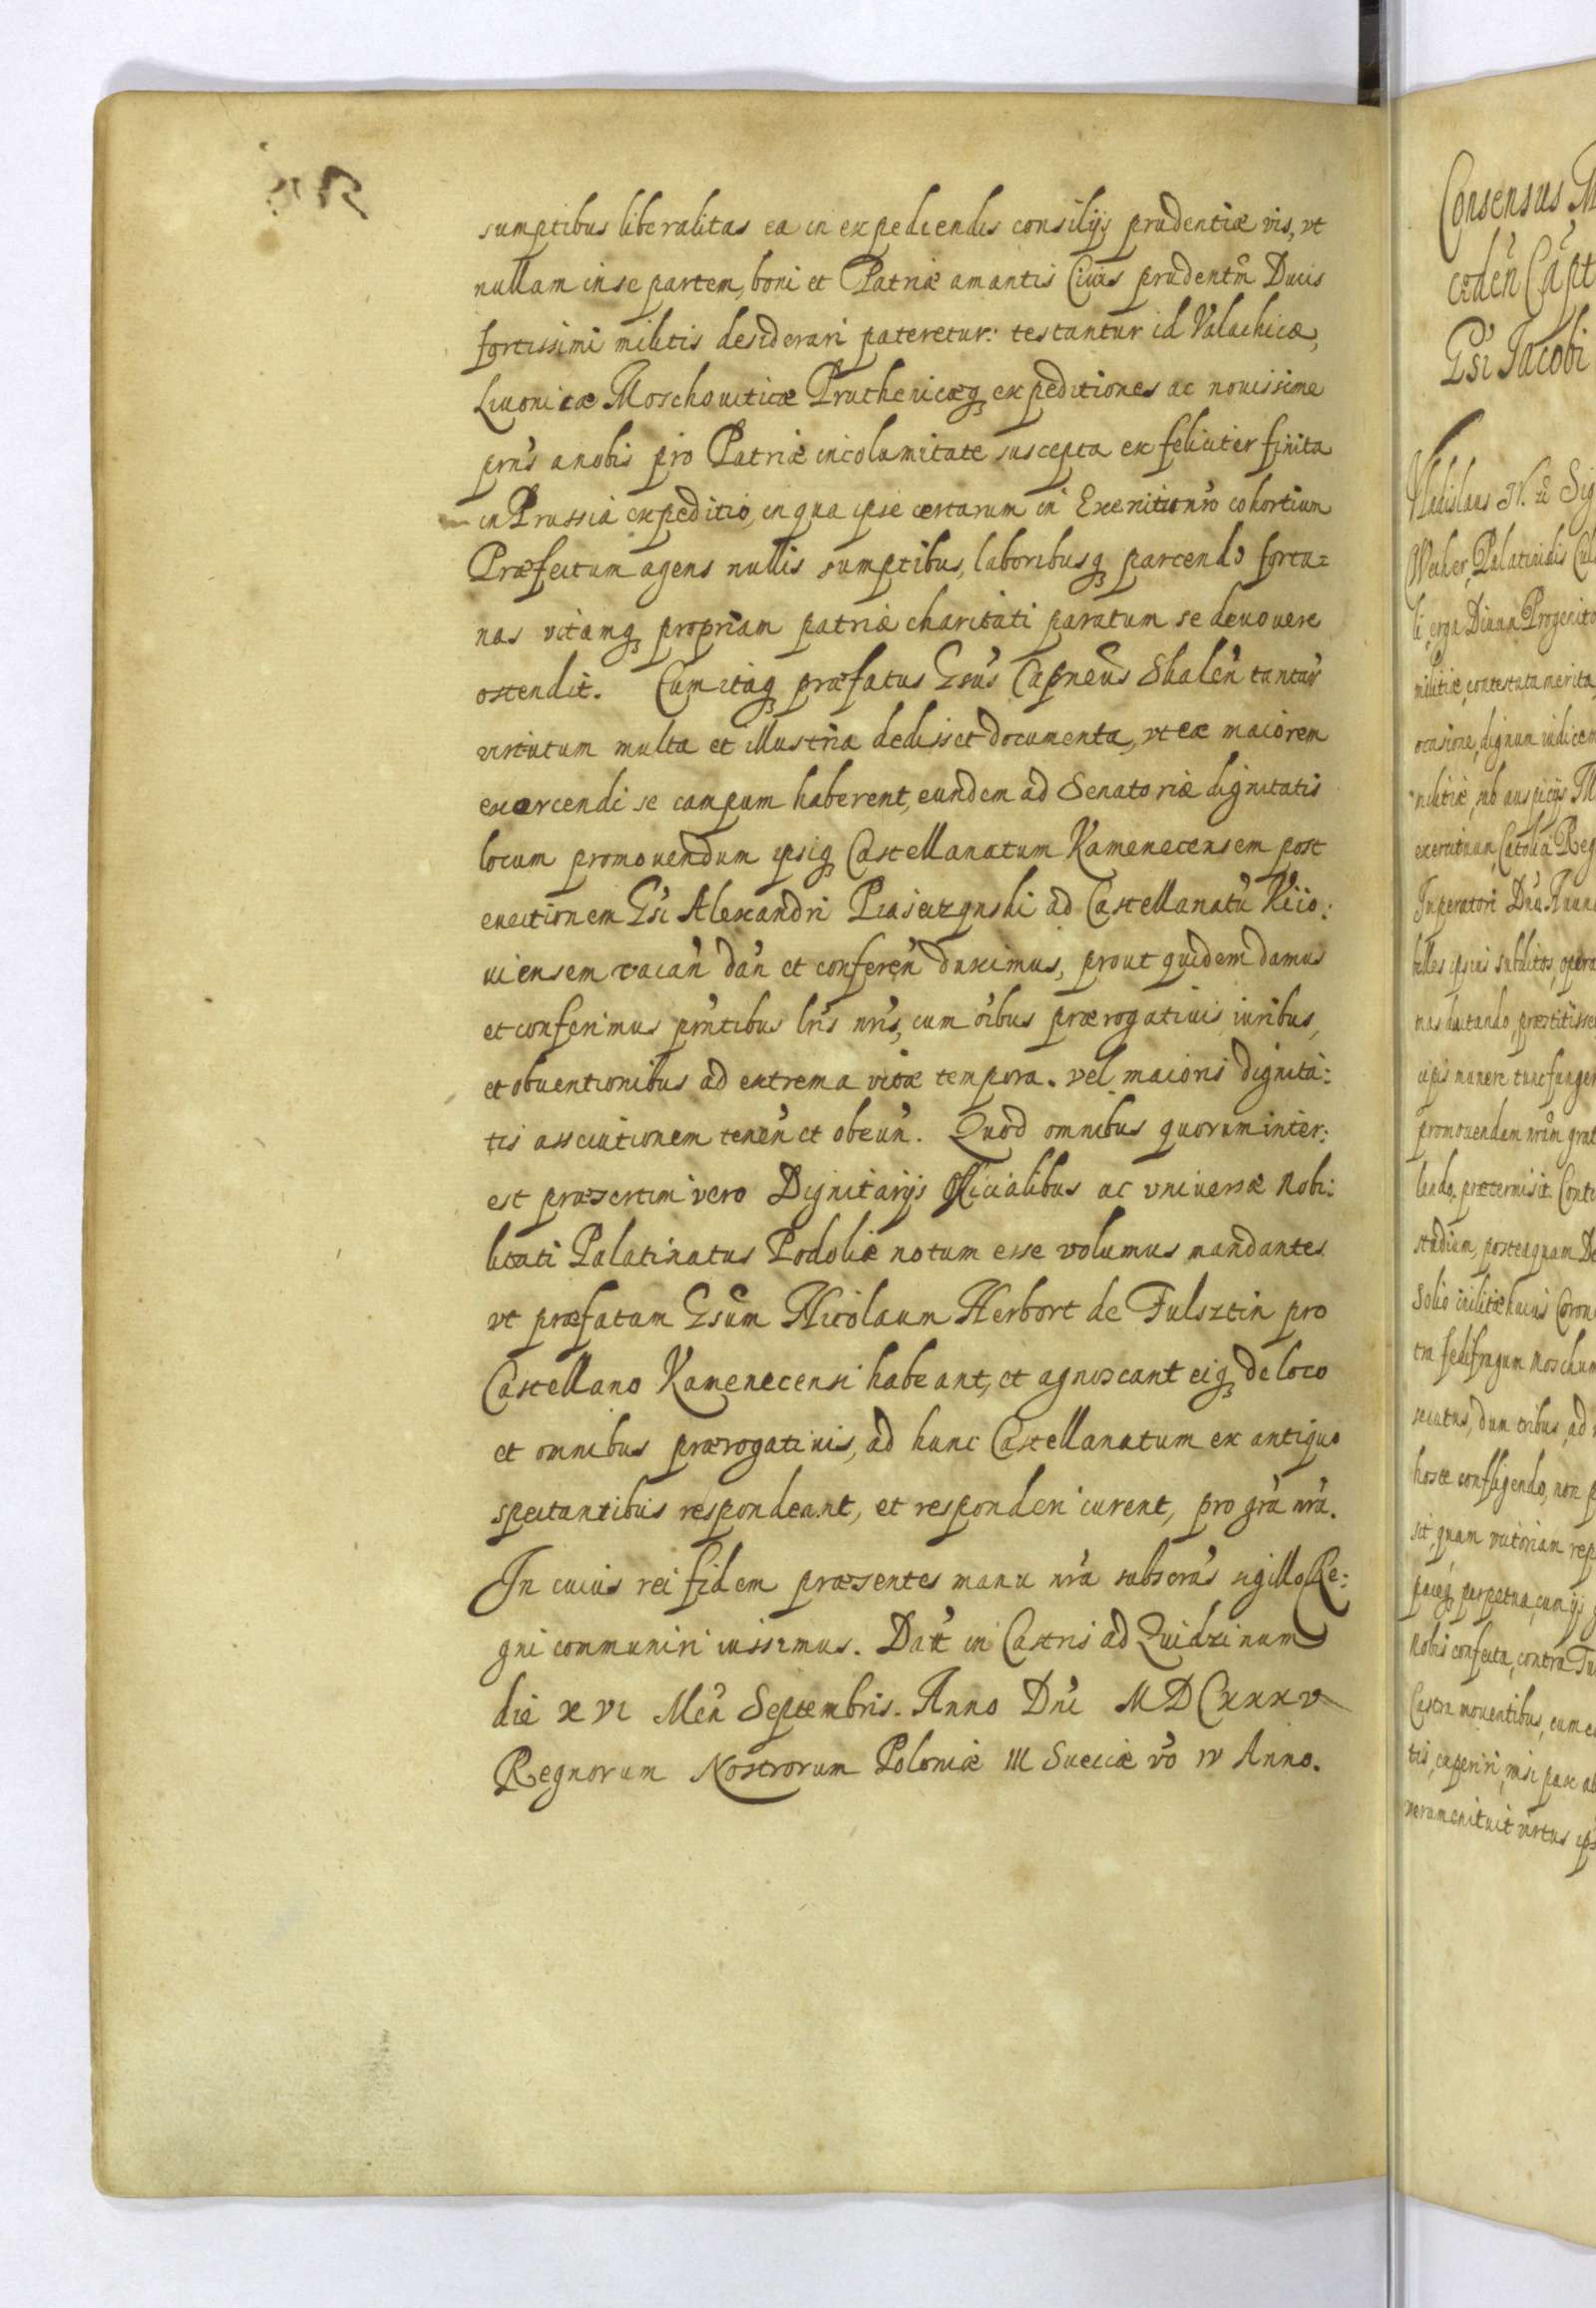 sumptibus liberalitas ea in expediendis consilijs prudentiæ vis, vt
nullam in se partem, boni et Patriæ amantis Ciuis prudentm̃ Ducis
fortissimi militis desiderari pateretur: testantur id Valachicæ,
Liuonicæ Moschouiticæ Pruthenicæq; expeditiones ac nouissime
prñs a nobis pro Patriæ incolumitate suscepta et feliciter finita
in Prussia expeditio, in qua ipse certarum in Exercitu nr̃o cohortium
Præfectum agens nullis sumptibus, laboribusq; parcendo fortu=
nas vitamq; propriam patriæ charitati paratum se deuouere
ostendit. Cum itaq; præfatus Gsũs Capneũs Skaleñ tantar̃
virtutum multa et illustria dedisset documenta, vt eæ maiorem
exercendi se campum haberent, eundem ad Senatoriæ dignitatis
locum promouendum ipsiq; Castellanatum Kamenecensem post
euectionem Gsi Alexandri Piaseczynski ad Castellanatũ Kiio:
uiensem vacañ dañ et confereñ duximus, prout quidem damus
et conferimus prñtibus lr̃is nr̃is, cum oĩbus prærogatiuis iuribus,
et obuentionibus ad extrema vitæ tempora. vel maioris dignita:
tis assecutionem teneñ et obeuñ. Quod omnibus quorum inter:
est præsertim vero Dignitarijs Officialibus ac vniuersæ Nobi:
litati Palatinatus Podoliæ notum esse volumus mandantes
vt præfatum Gsum Nicolaum Herbort de Fulsztin pro
Castellano Kamenecensi habeant, et agnoscant eiq; de loco
et omnibus prærogatiuis, ad hunc Castellanatum ex antiquo
spectantibus respondeant, et responderi curent, pro grã nr̃a.
In cuius rei fidem præsentes manu nr̃a subscrãs sigillo Re:
gni communiri iussimus. Datt in Castris ad Quidzinum
die XVI Meñ Septembris. Anno Dñi MDCXXXV
Regnorum Nostrorum Poloniæ III Sueciæ vo IV Anno.
Consensus
cedeñ Capt
Gsi Jacobi
Vladislaus IV.
Weiher, Palatinidis
erga Diuum Progenito
militiæ, contestata merita,
ocasione, dignum iudicem
militiæ, sub auspicijs
exercituum,
Imperatori
ipsius subditos, opera
præstitisse
munere tunc funger
promouendam nr̃am grat
prætermisit.
studium, posteaquam
Solio
fedifragum Moschum
dum tribus, ad
hoste confligendo, non
sit, quam victoriam
perpetua, cum ijs
Nobis confecta, contra
Castra mouentibus, eum
experiri, nisi pace
enituit virtus